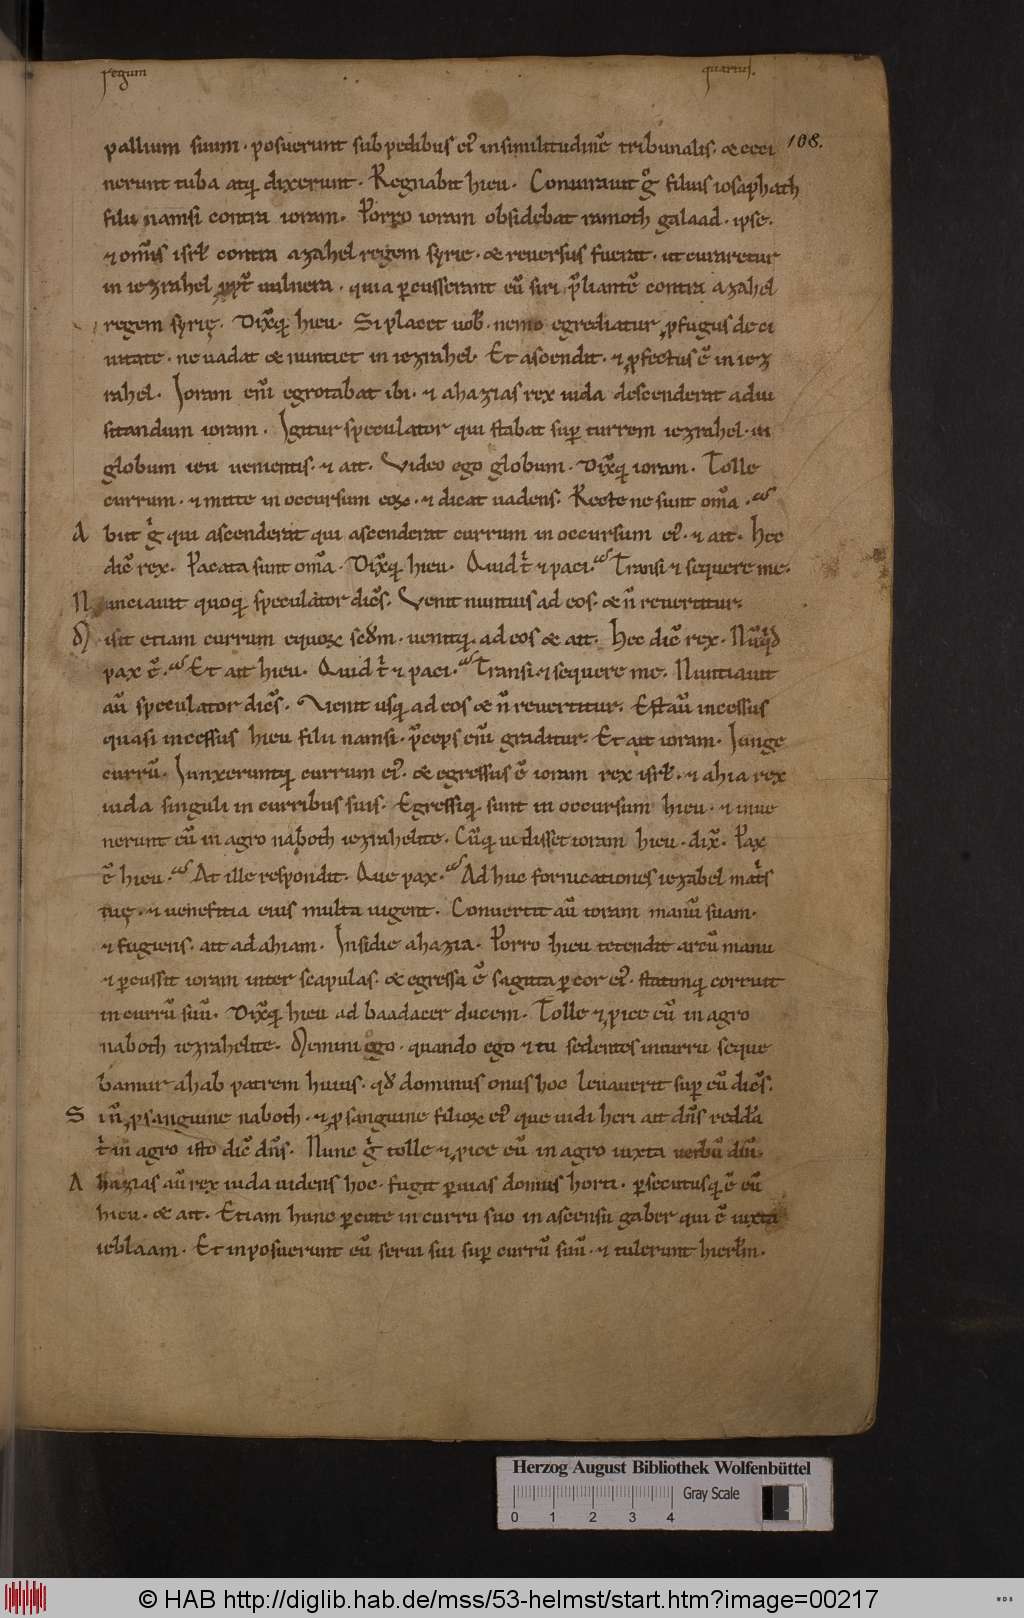 regum quartus.
108.
pallium suum · posuerunt sub pedibus ei᷒ in similitudinē tribunalis · & ceci
nerunt tuba atq; dixerunt · Regnabit hieu · Coniurauit g̊ filius iosaphath
filii namsi contra ioram · Porro ioram obsidebat ramoth galaad · ipse ·
⁊ om̄is isrł contra azahel regem syrie · & reuersus fuerat · ut curaretur
in iezrahel ꝓpt̄ uulnera · quia ꝑcusserant eū siri p̄liantē contra azahel
regem syrię · Dixitq; hieu · Si placet uob̄ · nemo egrediatur ꝓfugus de ci
uitate · ne uadat & nuntiet in iezrahel · Et ascendit · ⁊ ꝓfectus ē in iez
rahel · Ioram eni̅ egrotabat ibi · ⁊ ahazias rex iuda descenderat ad ui
sitandum ioram · Igitur speculator qui stabat suꝑ turrem iezrahel · ui
globum ieu uenientis · ⁊ ait · Video ego globum · Dixitq; ioram · Tolle
currum · ⁊ mitte in occursum eoꝝ · ⁊ dicat uadens · Recte ne sunt om̄a ·
A biit g̊ qui ascenderat qui ascenderat currum in occursum ei᷒ · ⁊ ait · Hec
dic̄ rex · Pacata sunt om̄a · Dixitq; hieu · Quid t̄ ⁊ paci · Transi ⁊ sequere me ·
N unciauit quoq; speculator dic̄s · Venit nuntius ad eos · & n̄ reuertitur ·
M isit etiam currum equoꝝ sc̄dm · uenitq; ad eos & ait · Hec dic̄ rex · Nūq̇d
pax ē · Et ait hieu · Quid t̄ ⁊ paci · Transi · ⁊ sequere me · Nuntiauit
aū speculator dic̄s · Venit usq; ad eos & n̄ reuertitur · Est aū incessus
quasi incessus hieu filii namsi · p̄ceps eni̅ graditur · Et ait ioram · Iunge
currū · Iunxeruntq; currum ei᷒ · & egressus ē ioram rex isrł · ⁊ ahia rex
iuda singuli in curribus suis · Egressiq; sunt in occursum hieu · ⁊ inue
nerunt eū in agro naboth iezrahelite · Cūq; uidisset ioram hieu · dix̄ · Pax
ē hieu · At ille respondit · Que pax · Ad huc fornicationes iezabel mat̄s
tuę · ⁊ uenefitia eius multa uigent · Conuertit aū ioram manū suam ·
⁊ fugiens · ait ad ahiam · Insidie ahazia · Porro hieu tetendit arcū manu
⁊ ꝑcussit ioram inter scapulas · & egressa ē sagitta ꝑ cor ei᷒ · statimq; corruit
in currū suū · Dixitq; hieu ad baadacer ducem · Tolle ⁊ ꝓice eū in agro
naboth iezrahelite · Memini ego · quando ego ⁊ tu sedentes in curru seque
bamur ahab patrem huius · qđ dominus onus hoc leuauerit suꝑ eū dic̄s ·
S i n̄ ꝓ sanguine naboth · ⁊ ꝓ sanguine filioꝝ ei᷒ que uidi heri ait dn̄s reddā
t̄ in agro isto dic̄ dn̄s · Nunc g̊ tolle ⁊ ꝓice eū in agro iuxta uerbū dn̄i ·
A hazias aū rex iuda uidens hoc · fugit ꝑ uias domus horti · ꝑsecutusq; ē eū
hieu · & ait · Etiam hunc ꝑcute in curru suo in ascensu gaber qui ē iuxta
ieblaam · Et inposuerunt eū serui sui suꝑ currū suū · ⁊ tulerunt hierłm ·
Herzog August Bibliothek Wolfenbüttel
Gray Scale
0 1 2 3 4
© HAB http://diglib.hab.de/mss/53-helmst/start.htm?image=00217